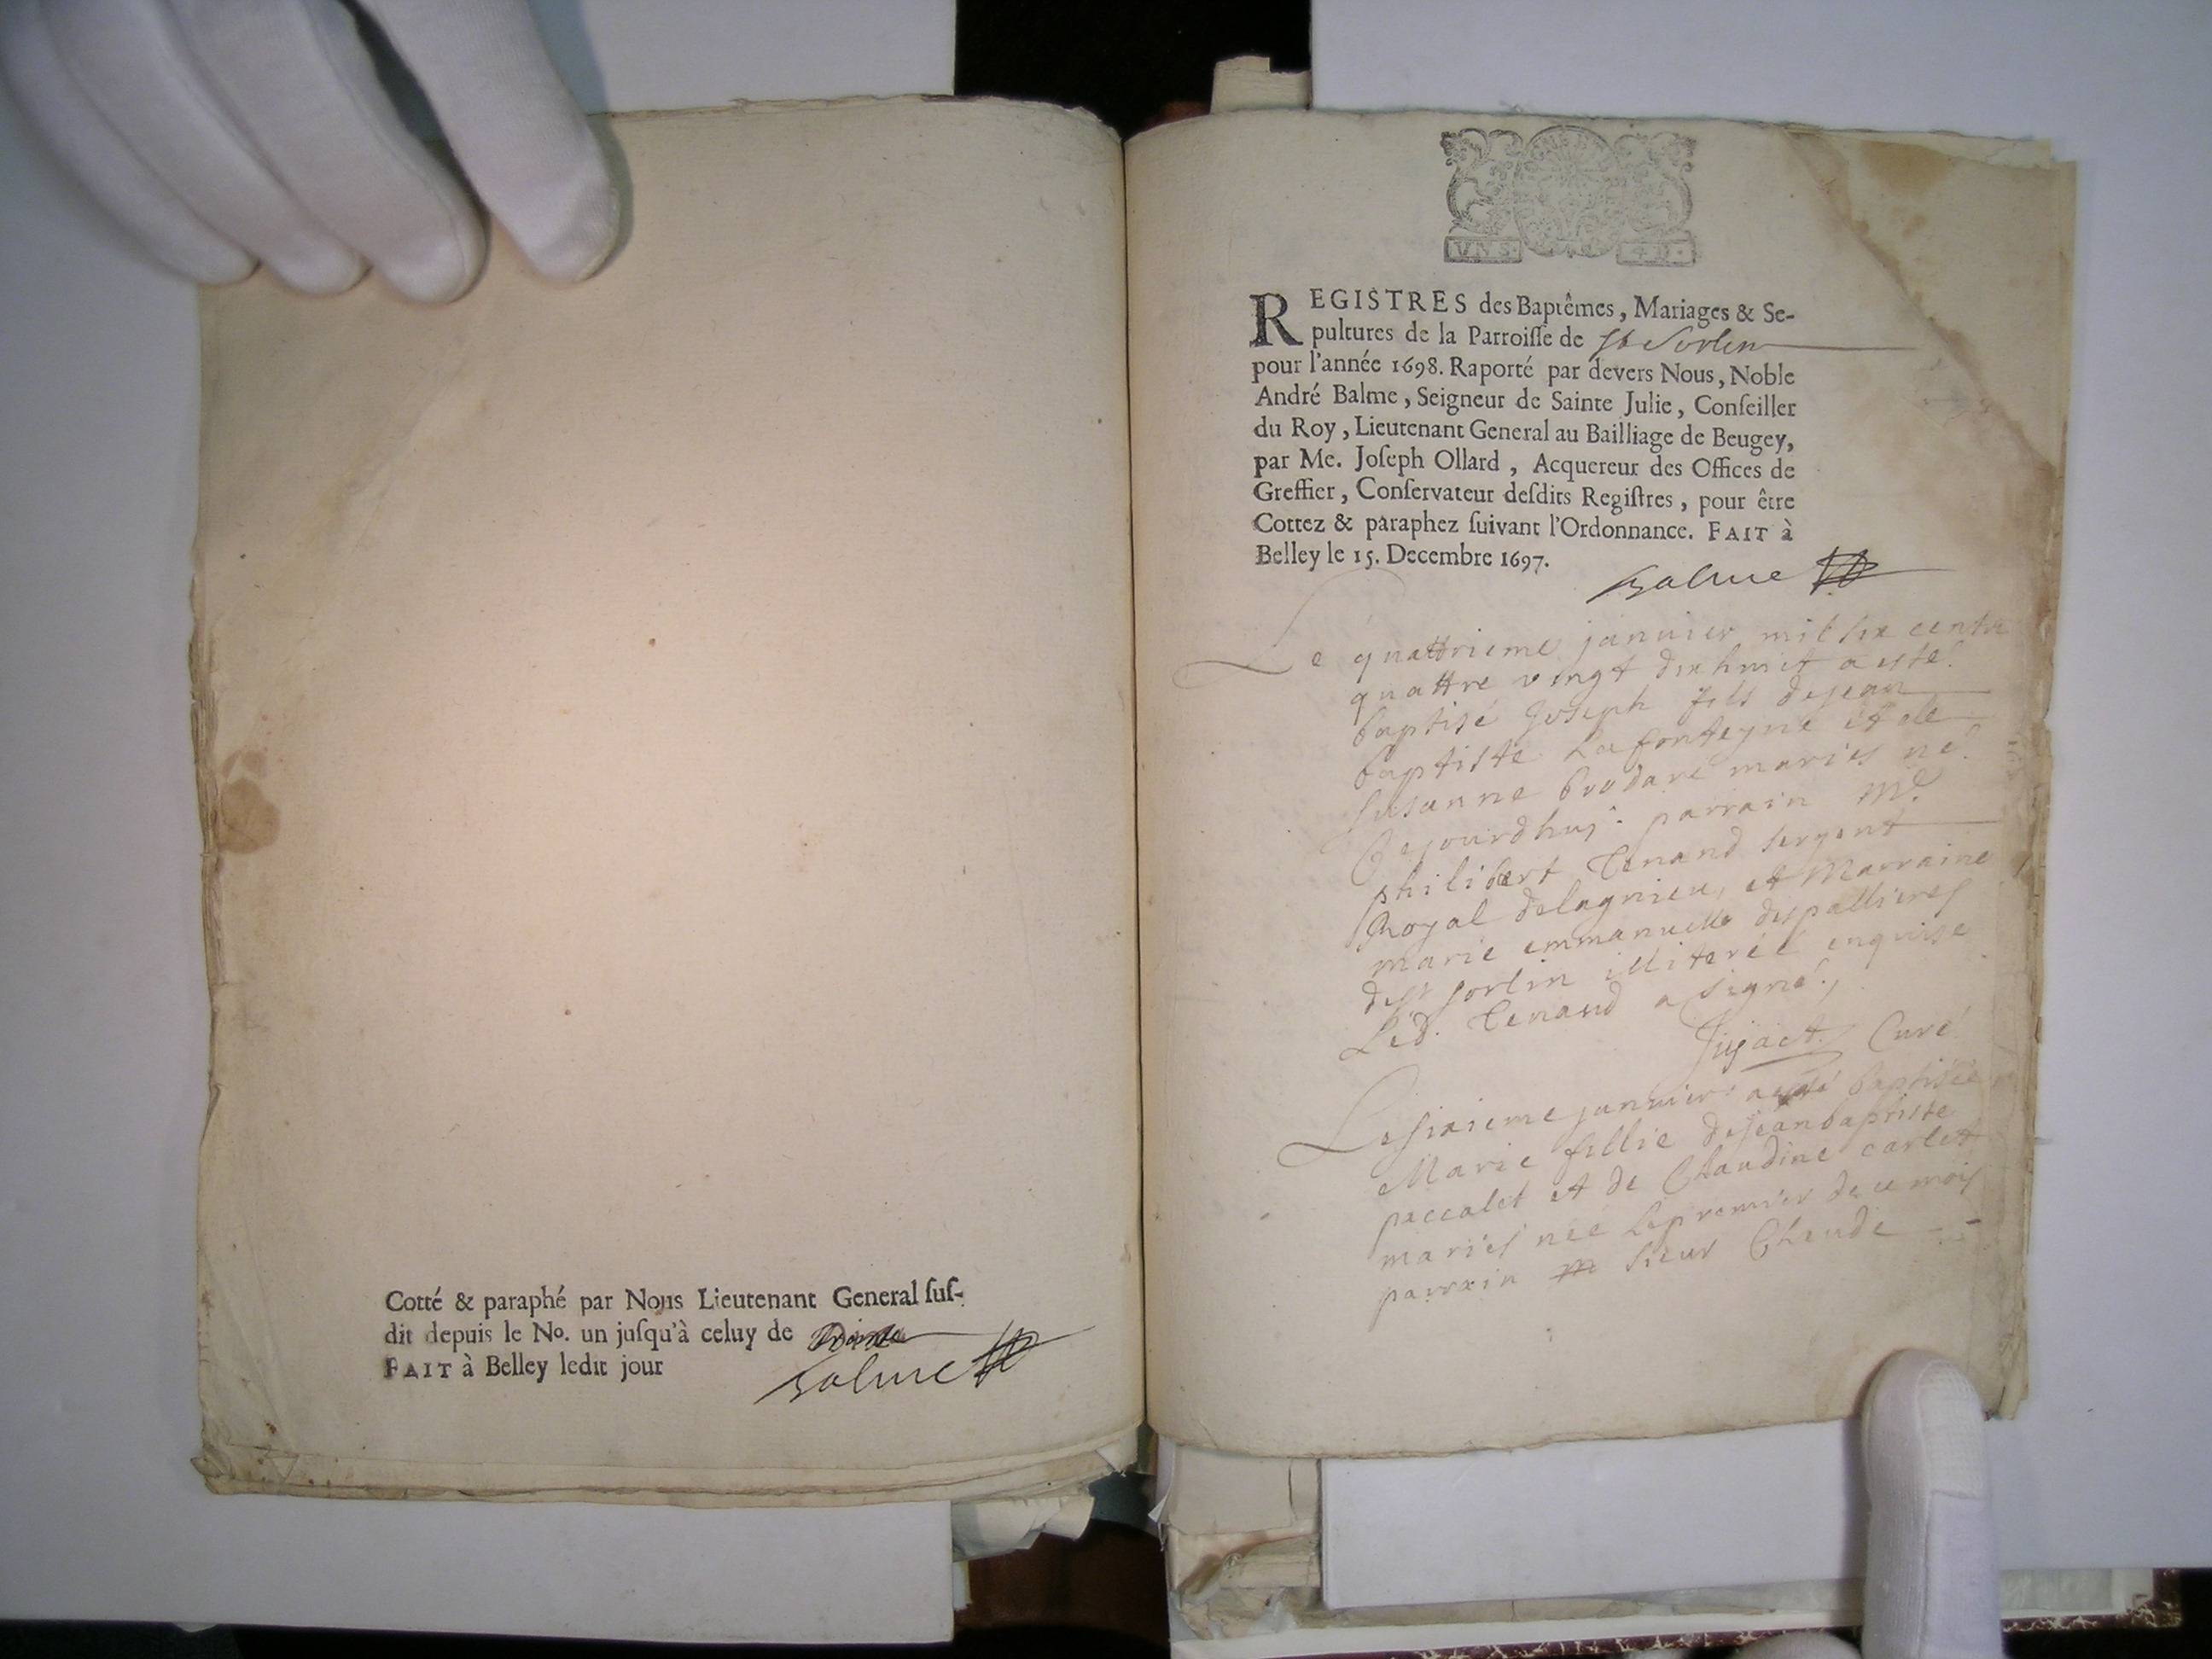 Cotté & paraphé par Nous Lieutenant General suf-
dit depuis le No. un juſqu'à celuy de
FAIT à Belley ledit jour
Balme
UN S.
REGISTRES des Baptêmes, Mariages & Se-
pultures de la Parroiſſe de St Sorlin
pour l'année 1698. Raporté par devers Nous, Noble
André Balme, Seigneur de Sainte Julie, Conſeiller
du Roy, Lieutenant General au Bailliage de Beugey,
par Me. Joſeph Ollard, Acquereur des Offices de
Greffier, Conſervateur deſdits Regiſtres, pour être
Cottez & paraphez ſuivant l'Ordonnance. FAIT à
Belley le 15. Decembre 1697.
Balme
Le quattrieme janvier mil six cents
quattre vingt dix huict a esté
baptisé Joseph fils de jean
baptiste Lafonteyne et de
Susanne brodare mariés né
Cejourdhuj. parrain Me
philibert Tenand sergent
Royal delagnieu, et Marraine
marie emmanuelle despallieres
de St sorlin illiterée enquise
Led. Tenand a signé.
Jujact Curé
Le sixieme janvier a esté baptisée
Marie fillie de jean baptiste
peccalet et de Claudine carlet
mariés née le premier de ce mois
parrain sieur Claude